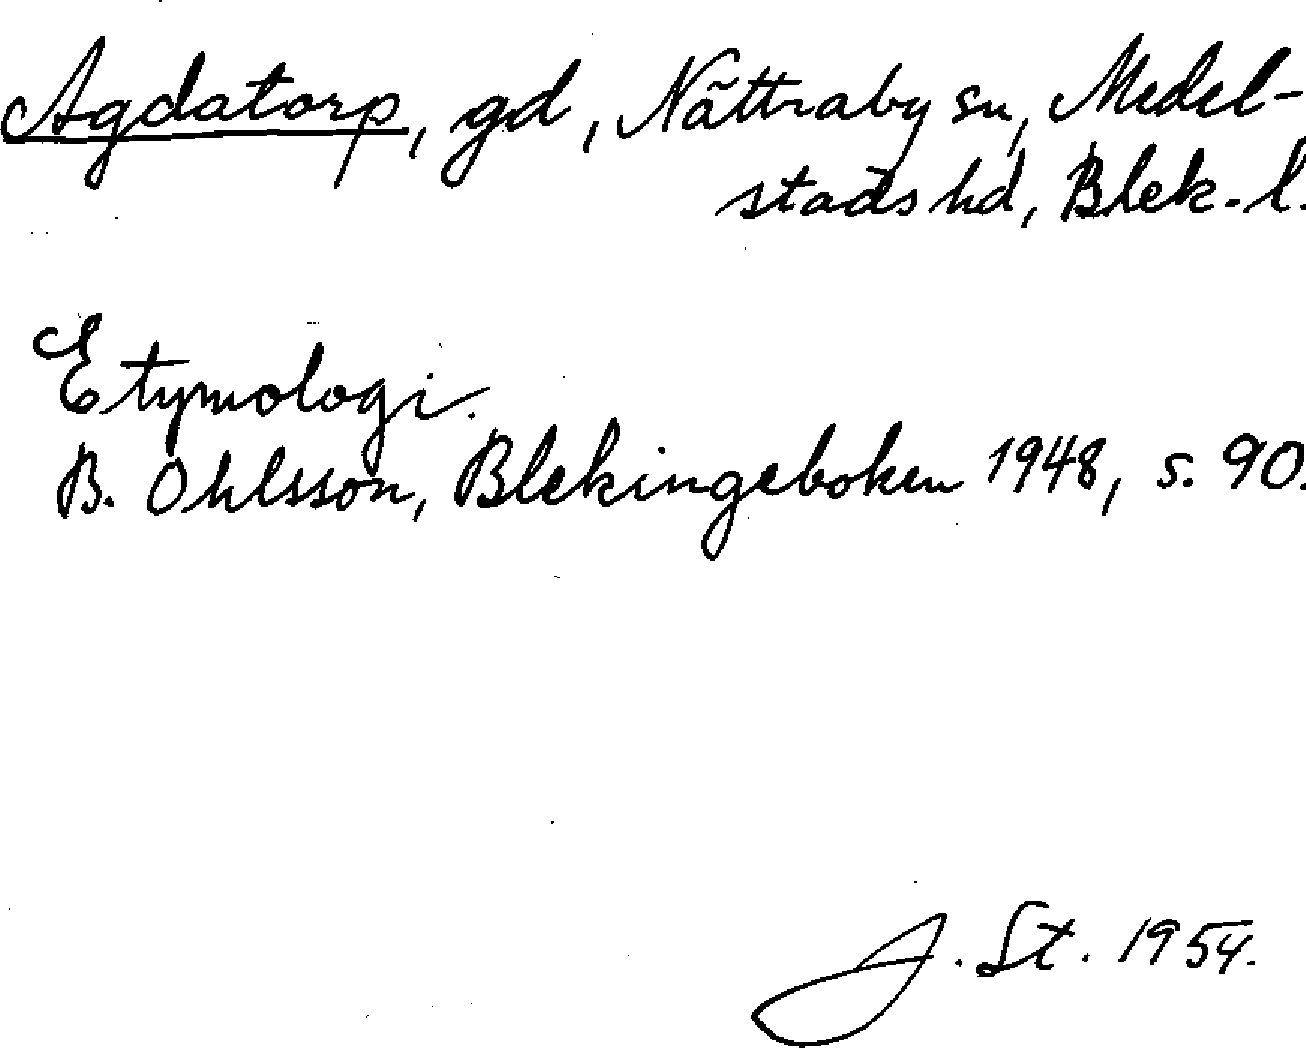 Agdatorp, gd, Nättraby sn, Medel-
stads hd, Blek. l.
Etymologi.
B. Ohlsson, Blekingeboken 1948, s. 90.
J. St. 1954.